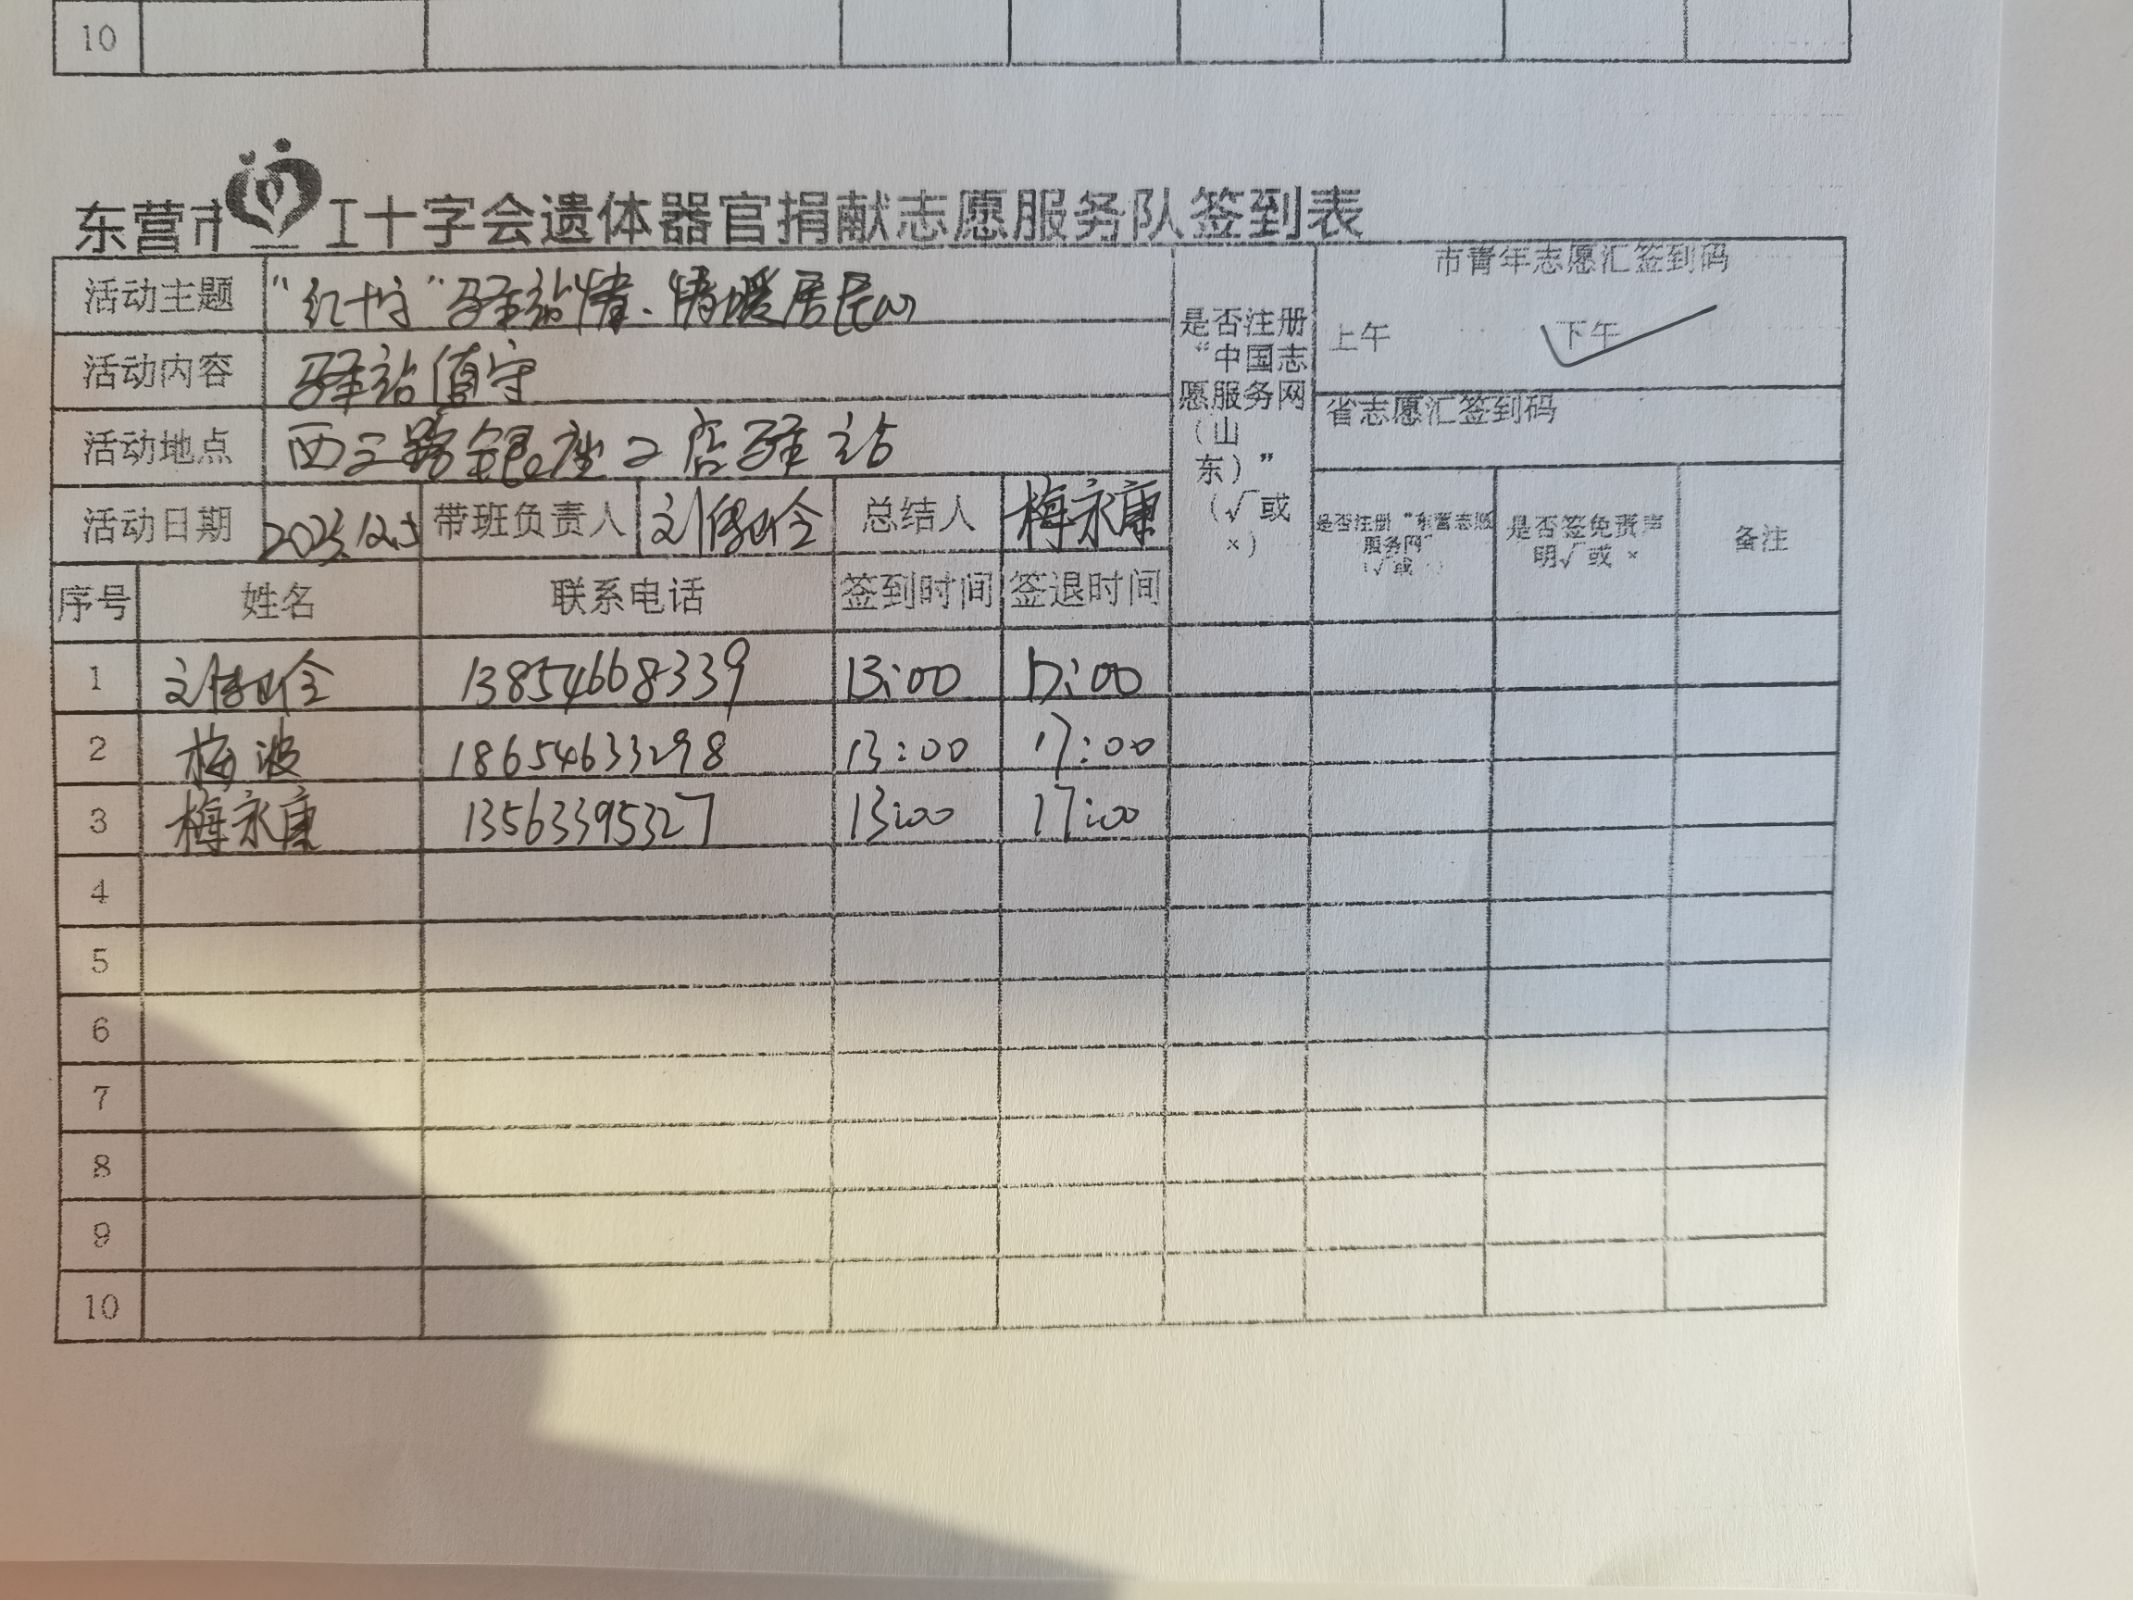 10
东营市红十字会遗体器官捐献志愿服务队签到表
活动主题 "红十字"驿站情、情暖居民心
活动内容 驿站值守
活动地点 西三路银座二店驿站
活动日期 2023.12.5 带班负责人 刘 总结人 梅永康
是否注册
“中国志
愿服务网
（山
东）”
（√或
×）
市青年志愿汇签到码
上午 下午
省志愿汇签到码
是否注册“东营志愿
服务网”
（√或
是否签免责声
明√或 ×
备注
序号 姓名 联系电话 签到时间 签退时间
1 刘 13854668339 13:00 17:00
2 梅波 18654633298 13:00 17:00
3 梅永康 13563395327 13:00 17:00
4
5
6
7
8
9
10